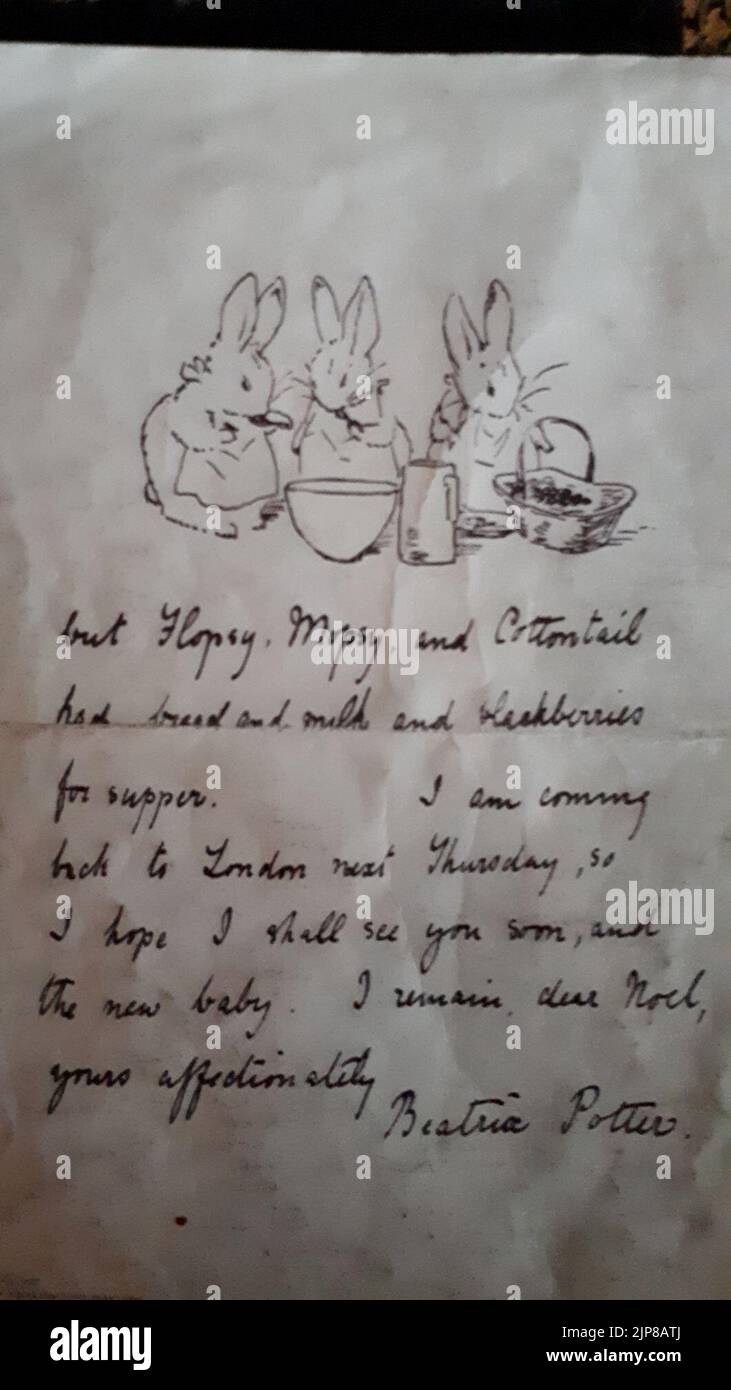 but Flopsy, Mopsy, and Cottontail
had bread and milk and blackberries
for supper. I am coming
back to London next Thursday, so
I hope I shall see you soon, and
the new baby. I remain, dear Noel,
yours affectionately
Beatrix Potter.
a
alamy
a
alamy
Image ID: 2JP8ATJ
www.alamy.com